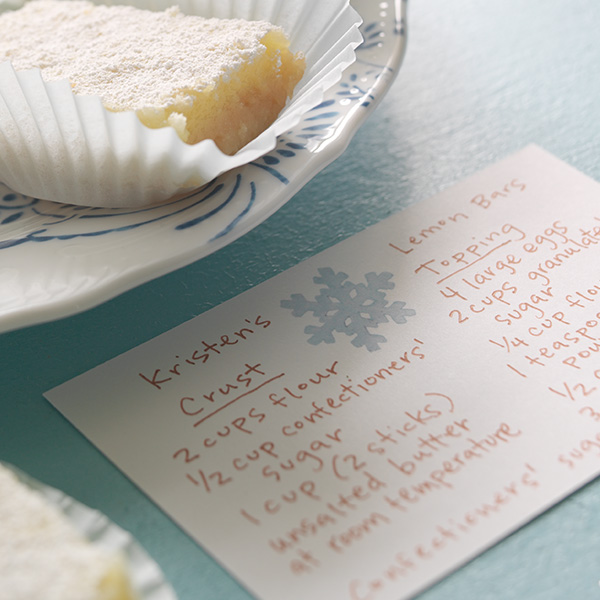 Kristen's Lemon Bars
Crust
2 cups flour
1/2 cup confectioners'
sugar
1 cup (2 sticks)
unsalted butter
at room temperature
Topping
4 large eggs
2 cups granulate
sugar
1/4 cup flou
1 teaspoo
pow
1/2 c
3
Confectioners' sug